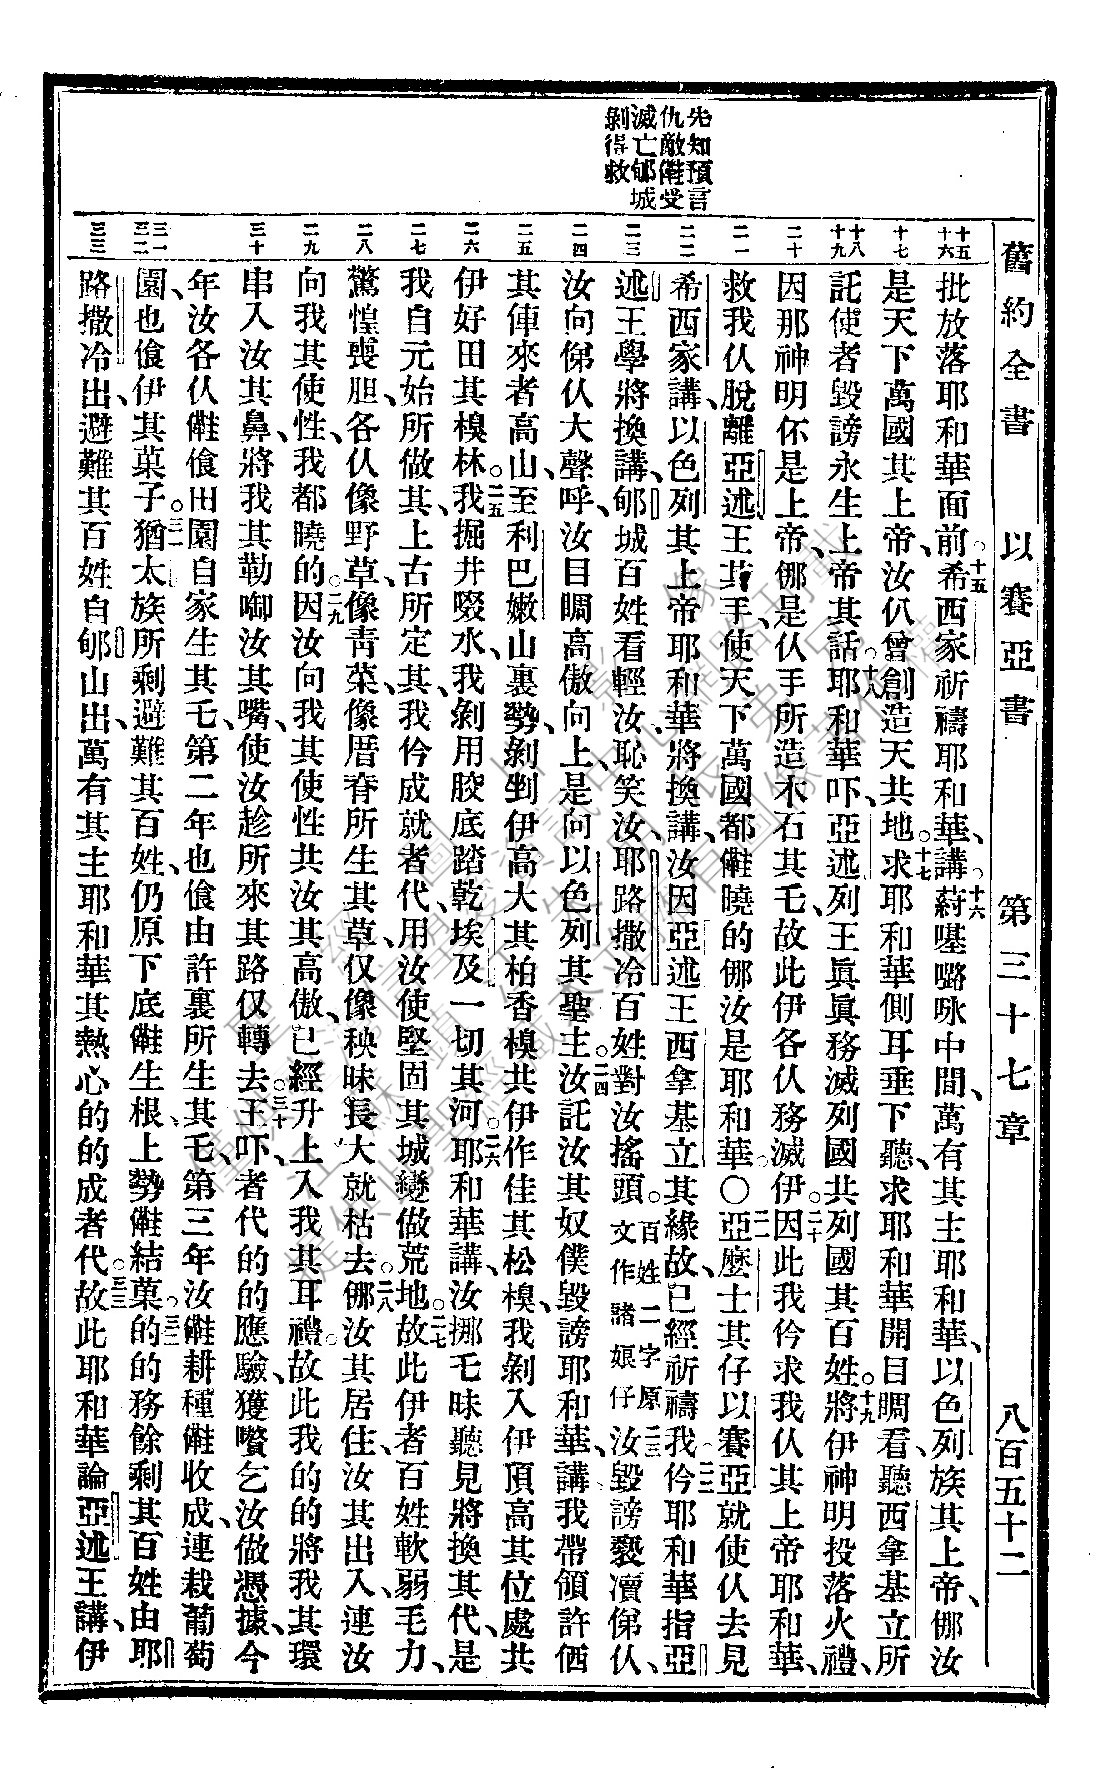 舊約全書 以賽亞書 第三十七章 八百五十二
先知預言
仇敵𣍐受
滅亡郇城
剝得救
十五
十六
十七
十八
十九
二十
二一
二二
二三
二四
二五
二六
二七
二八
二九
三十
三一
三二
三三
批放落耶和華面前。十五希西家祈禱耶和華、講。十六萬有其主耶和華、以色列族其上帝、㑚汝
是天下萬國其上帝、汝仈曾創造天共地。十七求耶和華側耳垂下聽、求耶和華開目睭看、聽西拿基立所
託使者毀謗永生上帝其話。十八耶和華吓、亞述列王眞眞務滅列國共列國其百姓。十九將伊神明投落火禮、
因那神明伓是上帝、㑚是仈手所造木石其乇、故此伊各仈務滅伊。二十因此我仱求我仈其上帝耶和華、
救我仈脫離亞述王其手、使天下萬國都𣍐曉的㑚汝是耶和華。○二一亞麽士其仔以賽亞就使仈去見
希西家講、以色列其上帝耶和華將換講、汝因亞述王西拿基立其緣故、已經祈禱我。二二仱耶和華指亞
述王學將換講、郇城百姓看輕汝、恥笑汝、耶路撒冷百姓對汝搖頭。百姓二字原文作諸娘仔二三汝毀謗褻瀆俤仈、
汝向俤仈大聲呼、汝目睭高傲向上、是向以色列其聖主。二四汝託汝其奴僕毀謗耶和華、講我帶領許価
其俥來者高山、至利巴嫩山裏勢、剝剉伊高大其柏香樕共伊作佳其松樕、我剝入伊頂高其位處、共
伊好田其樕林。二五我掘井啜水、我剝用骹底踏乾埃及一切其河。二六耶和華講、汝挪乇昧聽見將換其代、是
我自元始所做其、上古所定其、我仱成就者代、用汝使堅固其城變做荒地。二七故此伊者百姓軟弱乇力、
驚惶喪胆、各仈像野草、像靑菜、像厝脊所生其草、仅像秧昧長大就枯去。二八㑚汝其居住、汝其出入、連汝
向我其使性、我都曉的。二九因汝向我其使性共汝其高傲、已經升上入我其耳禮。故此我的的將我其環
串入汝其鼻、將我其勒啣汝其嘴、使汝趁所來其路仅轉去。三十王吓、者代的的應驗、獲囋乞汝做憑據、今
年汝各仈𣍐飡田園自家生其乇、第二年也飡由許裏所生其乇、第三年汝𣍐耕種𣍐收成、連栽葡萄
園、也飡伊其菓子。三一猶太族所剩避難其百姓、仍原下底𣍐生根、上勢𣍐結菓。三二的的務餘剩其百姓由耶
路撒冷出、避難其百姓自郇山出、萬有其主耶和華其熱心的的成者代。三三故此耶和華論亞述王講、伊